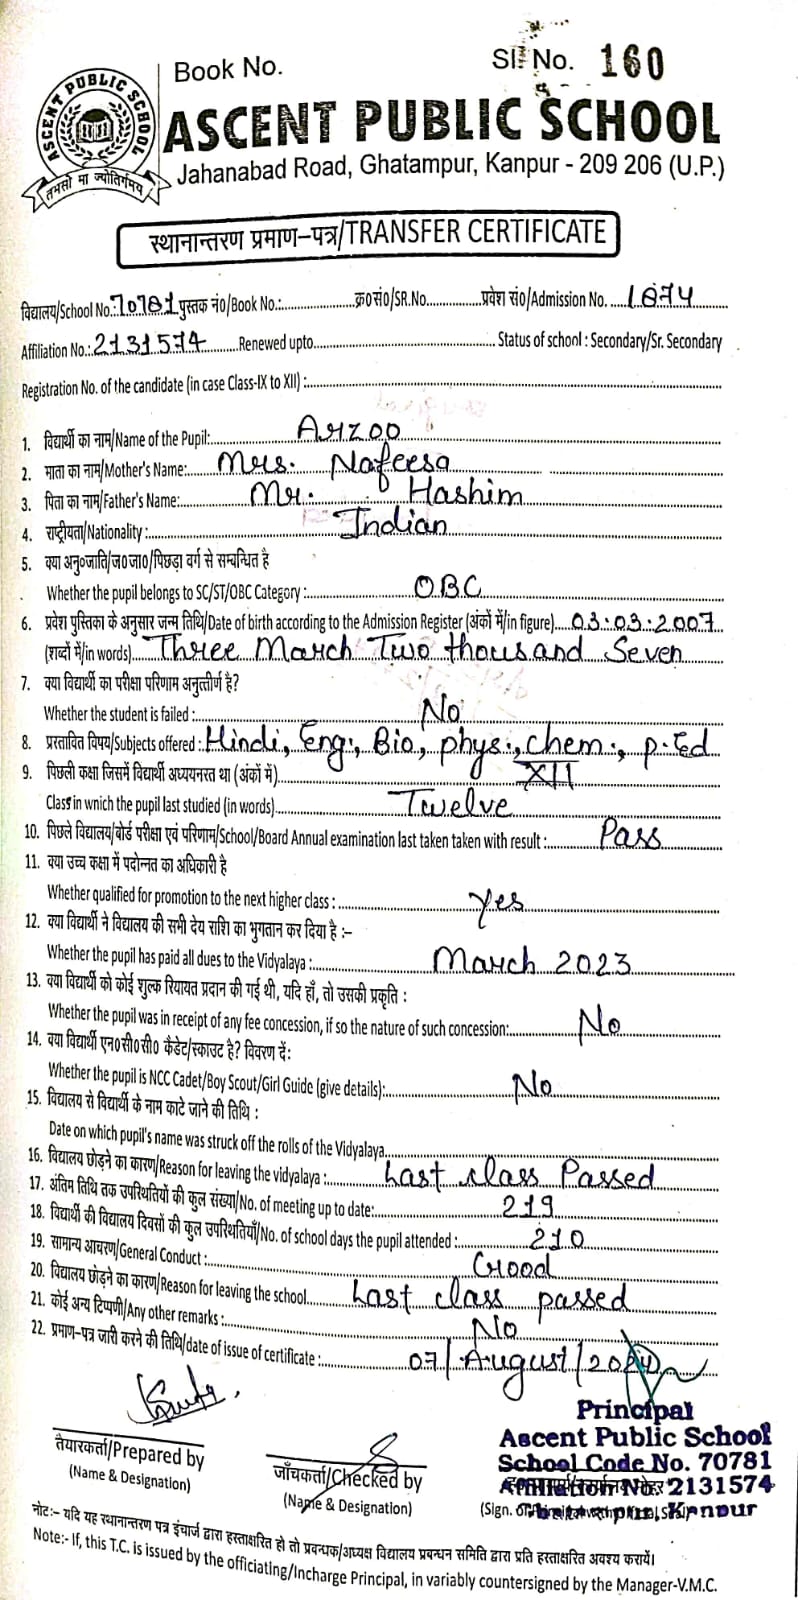 Book No.
Sl. No. 160
ASCENT PUBLIC SCHOOL
तमसो मा ज्योतिर्गमय
ASCENT PUBLIC SCHOOL
Jahanabad Road, Ghatampur, Kanpur - 209 206 (U.P.)
स्थानान्तरण प्रमाण-पत्र/TRANSFER CERTIFICATE
विद्यालय/School No.: 70781 पुस्तक नं0/Book No.:..........क्र0सं0/SR.No..........प्रवेश सं0/Admission No. ....1874
Affiliation No.: 2131574 ........Renewed upto..........Status of school : Secondary/Sr. Secondary
Registration No. of the candidate (in case Class-IX to XII) :..........
1. विद्यार्थी का नाम/Name of the Pupil:..........Arzoo
2. माता का नाम/Mother's Name:......Mrs. Nafeesa
3. पिता का नाम/Father's Name:..........Mr. Hashim
4. राष्ट्रीयता/Nationality :..........Indian
5. क्या अनु०जाति/ज०जा०/पिछड़ा वर्ग से सम्बन्धित है
Whether the pupil belongs to SC/ST/OBC Category :..........OBC
6. प्रवेश पुस्तिका के अनुसार जन्म तिथि/Date of birth according to the Admission Register (अंकों में/in figure)....03.03.2007
(शब्दों में/in words)...Three March Two thousand Seven
7. क्या विद्यार्थी का परीक्षा परिणाम अनुत्तीर्ण है?
Whether the student is failed :..........No
8. प्रस्तावित विषय/Subjects offered : Hindi, Eng., Bio, phys., chem., p.Ed
9. पिछली कक्षा जिसमें विद्यार्थी अध्ययनरत था (अंकों में)..........XII
Class in wnich the pupil last studied (in words)..........Twelve
10. पिछले विद्यालय/बोर्ड परीक्षा एवं परिणाम/School/Board Annual examination last taken taken with result :..........Pass
11. क्या उच्च कक्षा में पदोन्नत का अधिकारी है
Whether qualified for promotion to the next higher class :..........Yes
12. क्या विद्यार्थी ने विद्यालय की सभी देय राशि का भुगतान कर दिया है :-
Whether the pupil has paid all dues to the Vidyalaya :..........March 2023
13. क्या विद्यार्थी को कोई शुल्क रियायत प्रदान की गई थी, यदि हाँ, तो उसकी प्रकृति :
Whether the pupil was in receipt of any fee concession, if so the nature of such concession:..........No
14. क्या विद्यार्थी एन0सी0सी0 कैडेट/स्काउट है? विवरण दें:
Whether the pupil is NCC Cadet/Boy Scout/Girl Guide (give details):..........No
15. विद्यालय से विद्यार्थी के नाम काटे जाने की तिथि :
Date on which pupil's name was struck off the rolls of the Vidyalaya..........
16. विद्यालय छोड़ने का कारण/Reason for leaving the vidyalaya :..........Last class Passed
17. अंतिम तिथि तक उपस्थितियों की कुल संख्या/No. of meeting up to date:..........219
18. विद्यार्थी की विद्यालय दिवसों की कुल उपस्थितियाँ/No. of school days the pupil attended :..........210
19. सामान्य आचरण/General Conduct :..........Good
20. विद्यालय छोड़ने का कारण/Reason for leaving the school..........Last class passed
21. कोई अन्य टिप्पणी/Any other remarks :..........No
22. प्रमाण-पत्र जारी करने की तिथि/date of issue of certificate :..........07/August/2024
Principal
Ascent Public School
School Code No. 70781
Affiliation No. 2131574
Kanpur
तैयारकर्ता/Prepared by
(Name & Designation)
जाँचकर्ता/Checked by
(Name & Designation)
(Sign. of
नोट:- यदि यह स्थानान्तरण पत्र इंचार्ज द्वारा हस्ताक्षरित हो तो प्रबन्धक/अध्यक्ष विद्यालय प्रबन्धन समिति द्वारा प्रति हस्ताक्षरित अवश्य करायें।
Note:- If, this T.C. is issued by the officiating/Incharge Principal, in variably countersigned by the Manager-V.M.C.